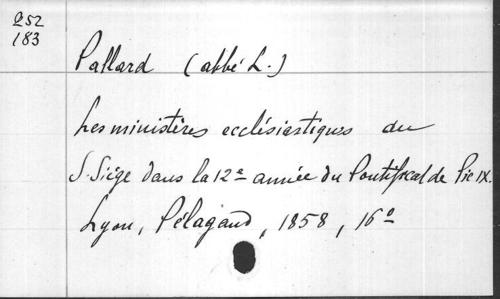 252
183
Pallard (abbé L.)
Les ministères ecclésiastiques du
S. Siège dans la 12e année du Pontifical de Pie IX.
Lyon, Pélagaud, 1858, 16º